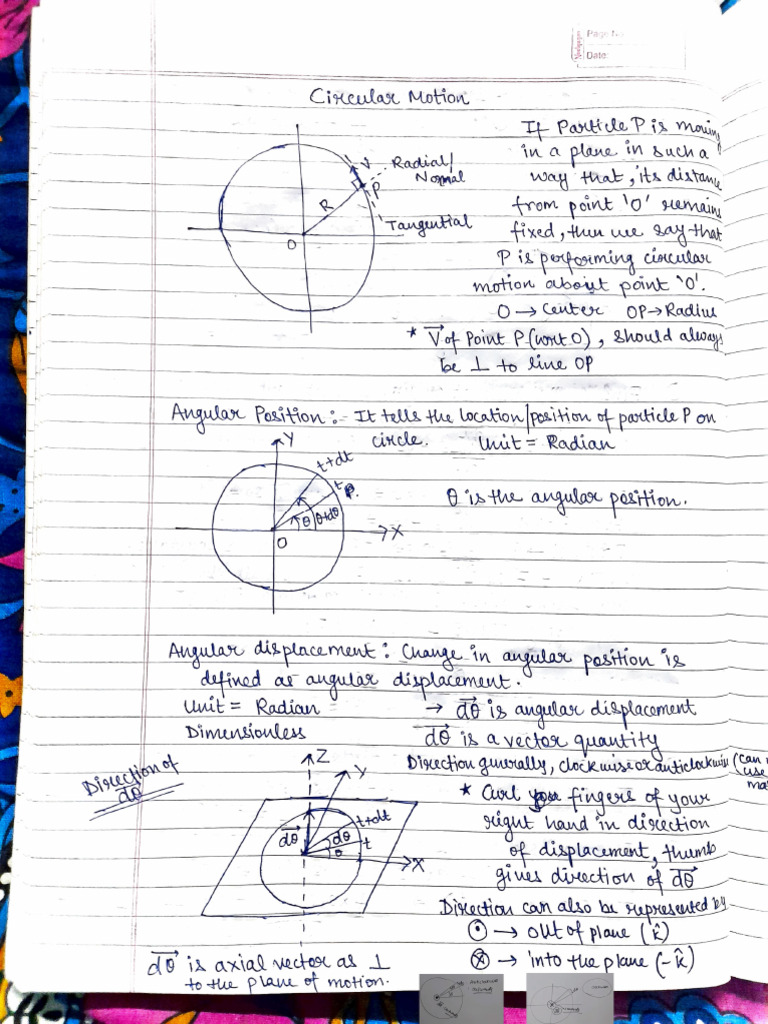 Page No.
Date:
Circular Motion
If Particle P is moving
in a plane in such a
way that, its distance
from point 'O' remains
fixed, then we say that
P is performing circular
motion about point 'O'.
O → Center OP → Radius
* V⃗ of Point P (wrt O), should always
be ⊥ to line OP
V
Radial/
Normal
P
R
Tangential
O
Angular Position:- It tells the location/position of particle P on
circle. Unit = Radian
Y
t+dt
t
P
θ
θ+dθ
X
O
θ is the angular position.
Angular displacement: Change in angular position is
defined as angular displacement.
Unit = Radian → dθ⃗ is angular displacement
Dimensionless dθ⃗ is a vector quantity
Direction generally, clockwise or anticlockwise (can
use
Direction of
dθ⃗
Z
Y
t+dt
dθ⃗
dθ
t
θ
X
* Curl fingers of your
right hand in direction
of displacement, thumb
gives direction of dθ⃗
Direction can also be represented by
⊙ → out of plane (k̂)
⊗ → into the plane (-k̂)
dθ⃗ is axial vector as ⊥
to the plane of motion.